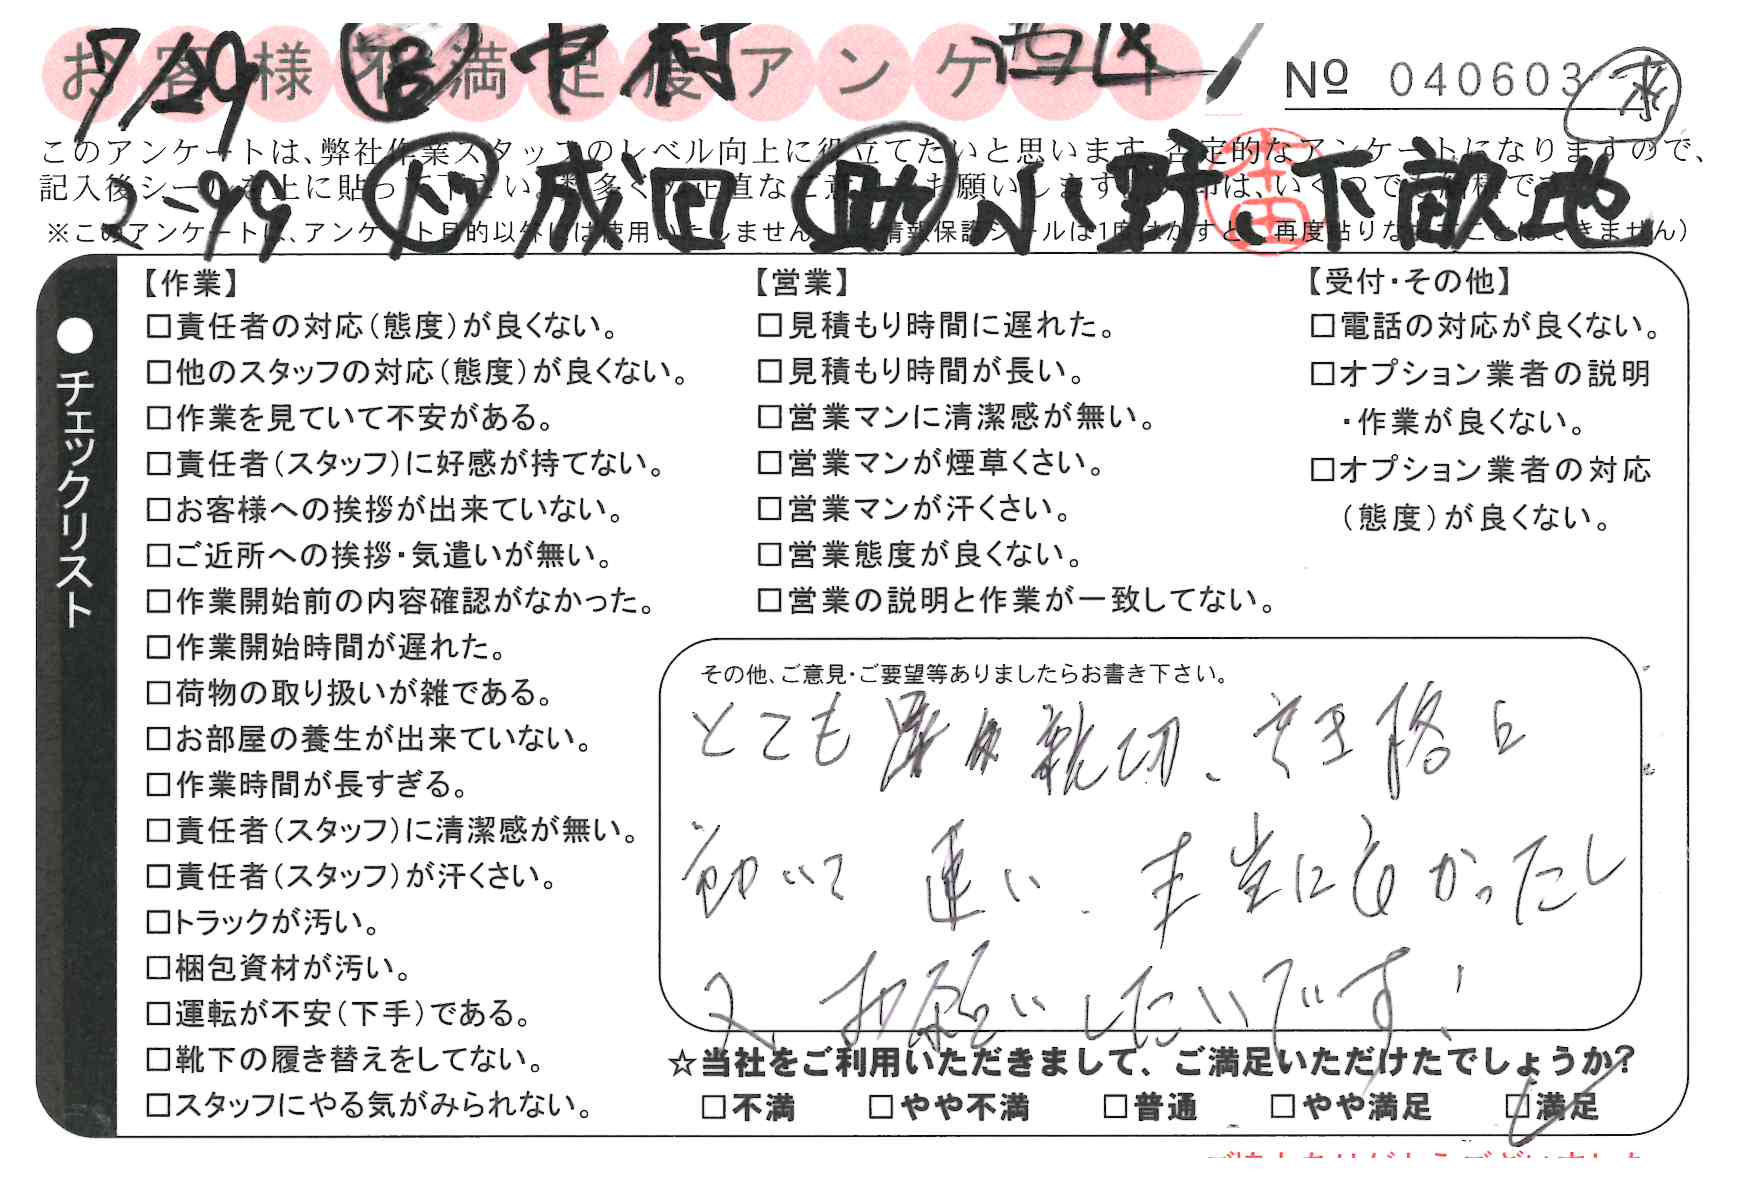 お客様不満足度アンケート
7/29 Ⓑ 中村 西区
№ 040603
このアンケートは、弊社作業スタッフのレベル向上に役立てたいと思います。否定的なアンケートになりますので、
記入後シールを上に貼って下さい。数多くの正直なご意見お願いします。
2-99 成田 助 小野、下敵地
※このアンケートは、アンケート目的以外には使用いたしません
チェックリスト
【作業】
□責任者の対応(態度)が良くない。
□他のスタッフの対応(態度)が良くない。
□作業を見ていて不安がある。
□責任者(スタッフ)に好感が持てない。
□お客様への挨拶が出来ていない。
□ご近所への挨拶・気遣いが無い。
□作業開始前の内容確認がなかった。
□作業開始時間が遅れた。
□荷物の取り扱いが雑である。
□お部屋の養生が出来ていない。
□作業時間が長すぎる。
□責任者(スタッフ)に清潔感が無い。
□責任者(スタッフ)が汗くさい。
□トラックが汚い。
□梱包資材が汚い。
□運転が不安(下手)である。
□靴下の履き替えをしてない。
□スタッフにやる気がみられない。
【営業】
□見積もり時間に遅れた。
□見積もり時間が長い。
□営業マンに清潔感が無い。
□営業マンが煙草くさい。
□営業マンが汗くさい。
□営業態度が良くない。
□営業の説明と作業が一致してない。
【受付・その他】
□電話の対応が良くない。
□オプション業者の説明
・作業が良くない。
□オプション業者の対応
(態度)が良くない。
その他、ご意見・ご要望等ありましたらお書き下さい。
とても 親切、
動いて 速い、本当に良かったし
又、お願いしたいです!
☆当社をご利用いただきまして、ご満足いただけたでしょうか?
□不満 □やや不満 □普通 □やや満足 □満足